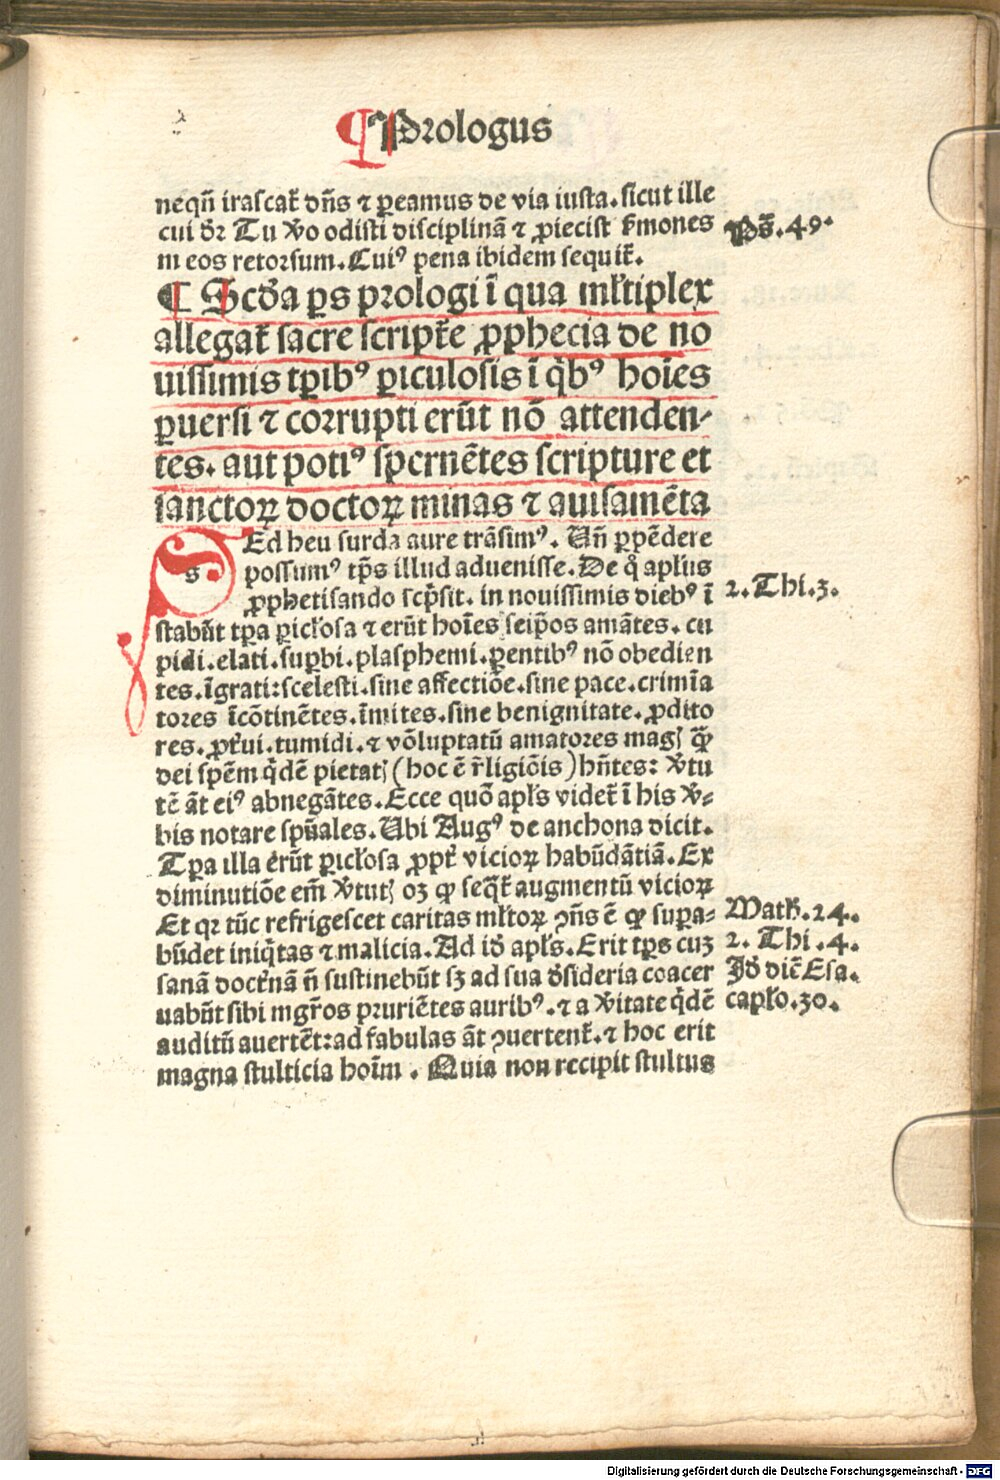 ¶ Prologus
nequñ irascat᷑ dñs ⁊ ꝑeamus de via iusta. sicut ille
cui d̄r Tu v̄o odisti disciplinā ⁊ ꝓiecist sermones
m eos retorsum. Cuiꝰ pena ibidem sequit᷑.
Ps̄. 49.
¶ Scd̄a ꝑs prologi ī qua ml̄tiplex
allegat᷑ sacre script᷑e ꝓphecia de no
uissimis tꝑibꝰ ꝑiculosis ī qͥbꝰ hoīes
ꝑuersi ⁊ corrupti erūt nō attenden-
tes. aut potiꝰ spernētes scripture et
sanctoꝝ doctoꝝ minas ⁊ auisamēta
SEd heu surda aure trāsimꝰ. Uñ ꝑpēdere
possumꝰ tp̄s illud aduenisse. De q̊ apl̄us
ꝓphetisando scp̄sit. in nouissimis diebꝰ ī
2. Thi. 3.
stabūt tꝑa ꝑicl̄osa ⁊ erūt hoīes seip̄os amātes. cu
pidi. elati. suꝑbi. plasphemi. ꝑentibꝰ nō obedien
tes. īgrati: scelesti. sine affectiōe. sine pace. crimīa
tores īcōtinētes. īmites. sine benignitate. ꝓdito
res. ꝓt᷑ui. tumidi. ⁊ vōluptatū amatores magꝭ q̄ꝫ
dei spēm qͥdē pietatꝭ (hoc ē r̄ligiōis) hñtes: v̄tu
tē āt eiꝰ abnegātes. Ecce quō apl̄s videt᷑ ī his v̄-
bis notare spūales. Ubi Augꝰ de anchona dicit.
Tꝑa illa erūt ꝑicl̄osa ꝓpt᷑ vicioꝝ habūdātiā. Ex
diminutiōe em̄ v̄tutꝭ oꝫ ꝙ seqͥt᷑ augmentū vicioꝝ
Et qꝛ tūc refrigescet caritas ml̄toꝝ ꝯñs ē ꝙ suꝑa-
Math. 24.
būdet iniqͥtas ⁊ malicia. Ad id̄ apl̄s. Erit tp̄s cuꝫ
2. Thi. 4.
sanā doct᷑nā ñ sustinebūt sꝫ ad sua d̄sideria coacer
Jd̄ dic̄ Esa.
uabūt sibi mgr̄os pruriētes auribꝰ. ⁊ a v̄itate qͥdē
capl̄o. 30.
auditū auertēt: ad fabulas āt ꝯuertent᷑. ⁊ hoc erit
magna stulticia hoīm. Quia non recipit stultus
Digitalisierung gefördert durch die Deutsche Forschungsgemeinschaft - DFG